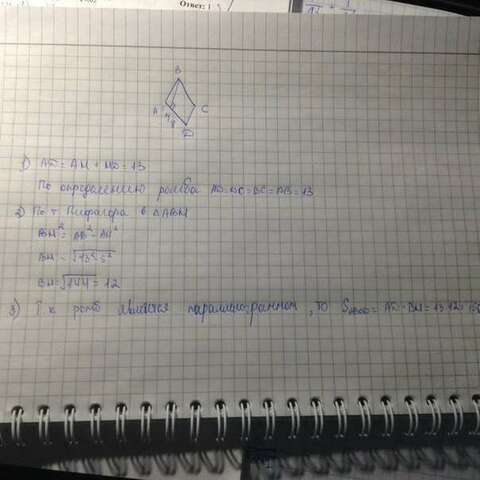 Ответ: 1
B
A
C
H
8
D
1) AD = AH + HD = 13
По определению ромба AD=DC=BC=AB=13
2) По т. Пифагора в △ABH
BH² = AB² - AH²
BH = √13²-5²
BH=√144 = 12
3) Т.к ромб является параллелограммом, то S_ABCD = AD · BH = 13·12 =